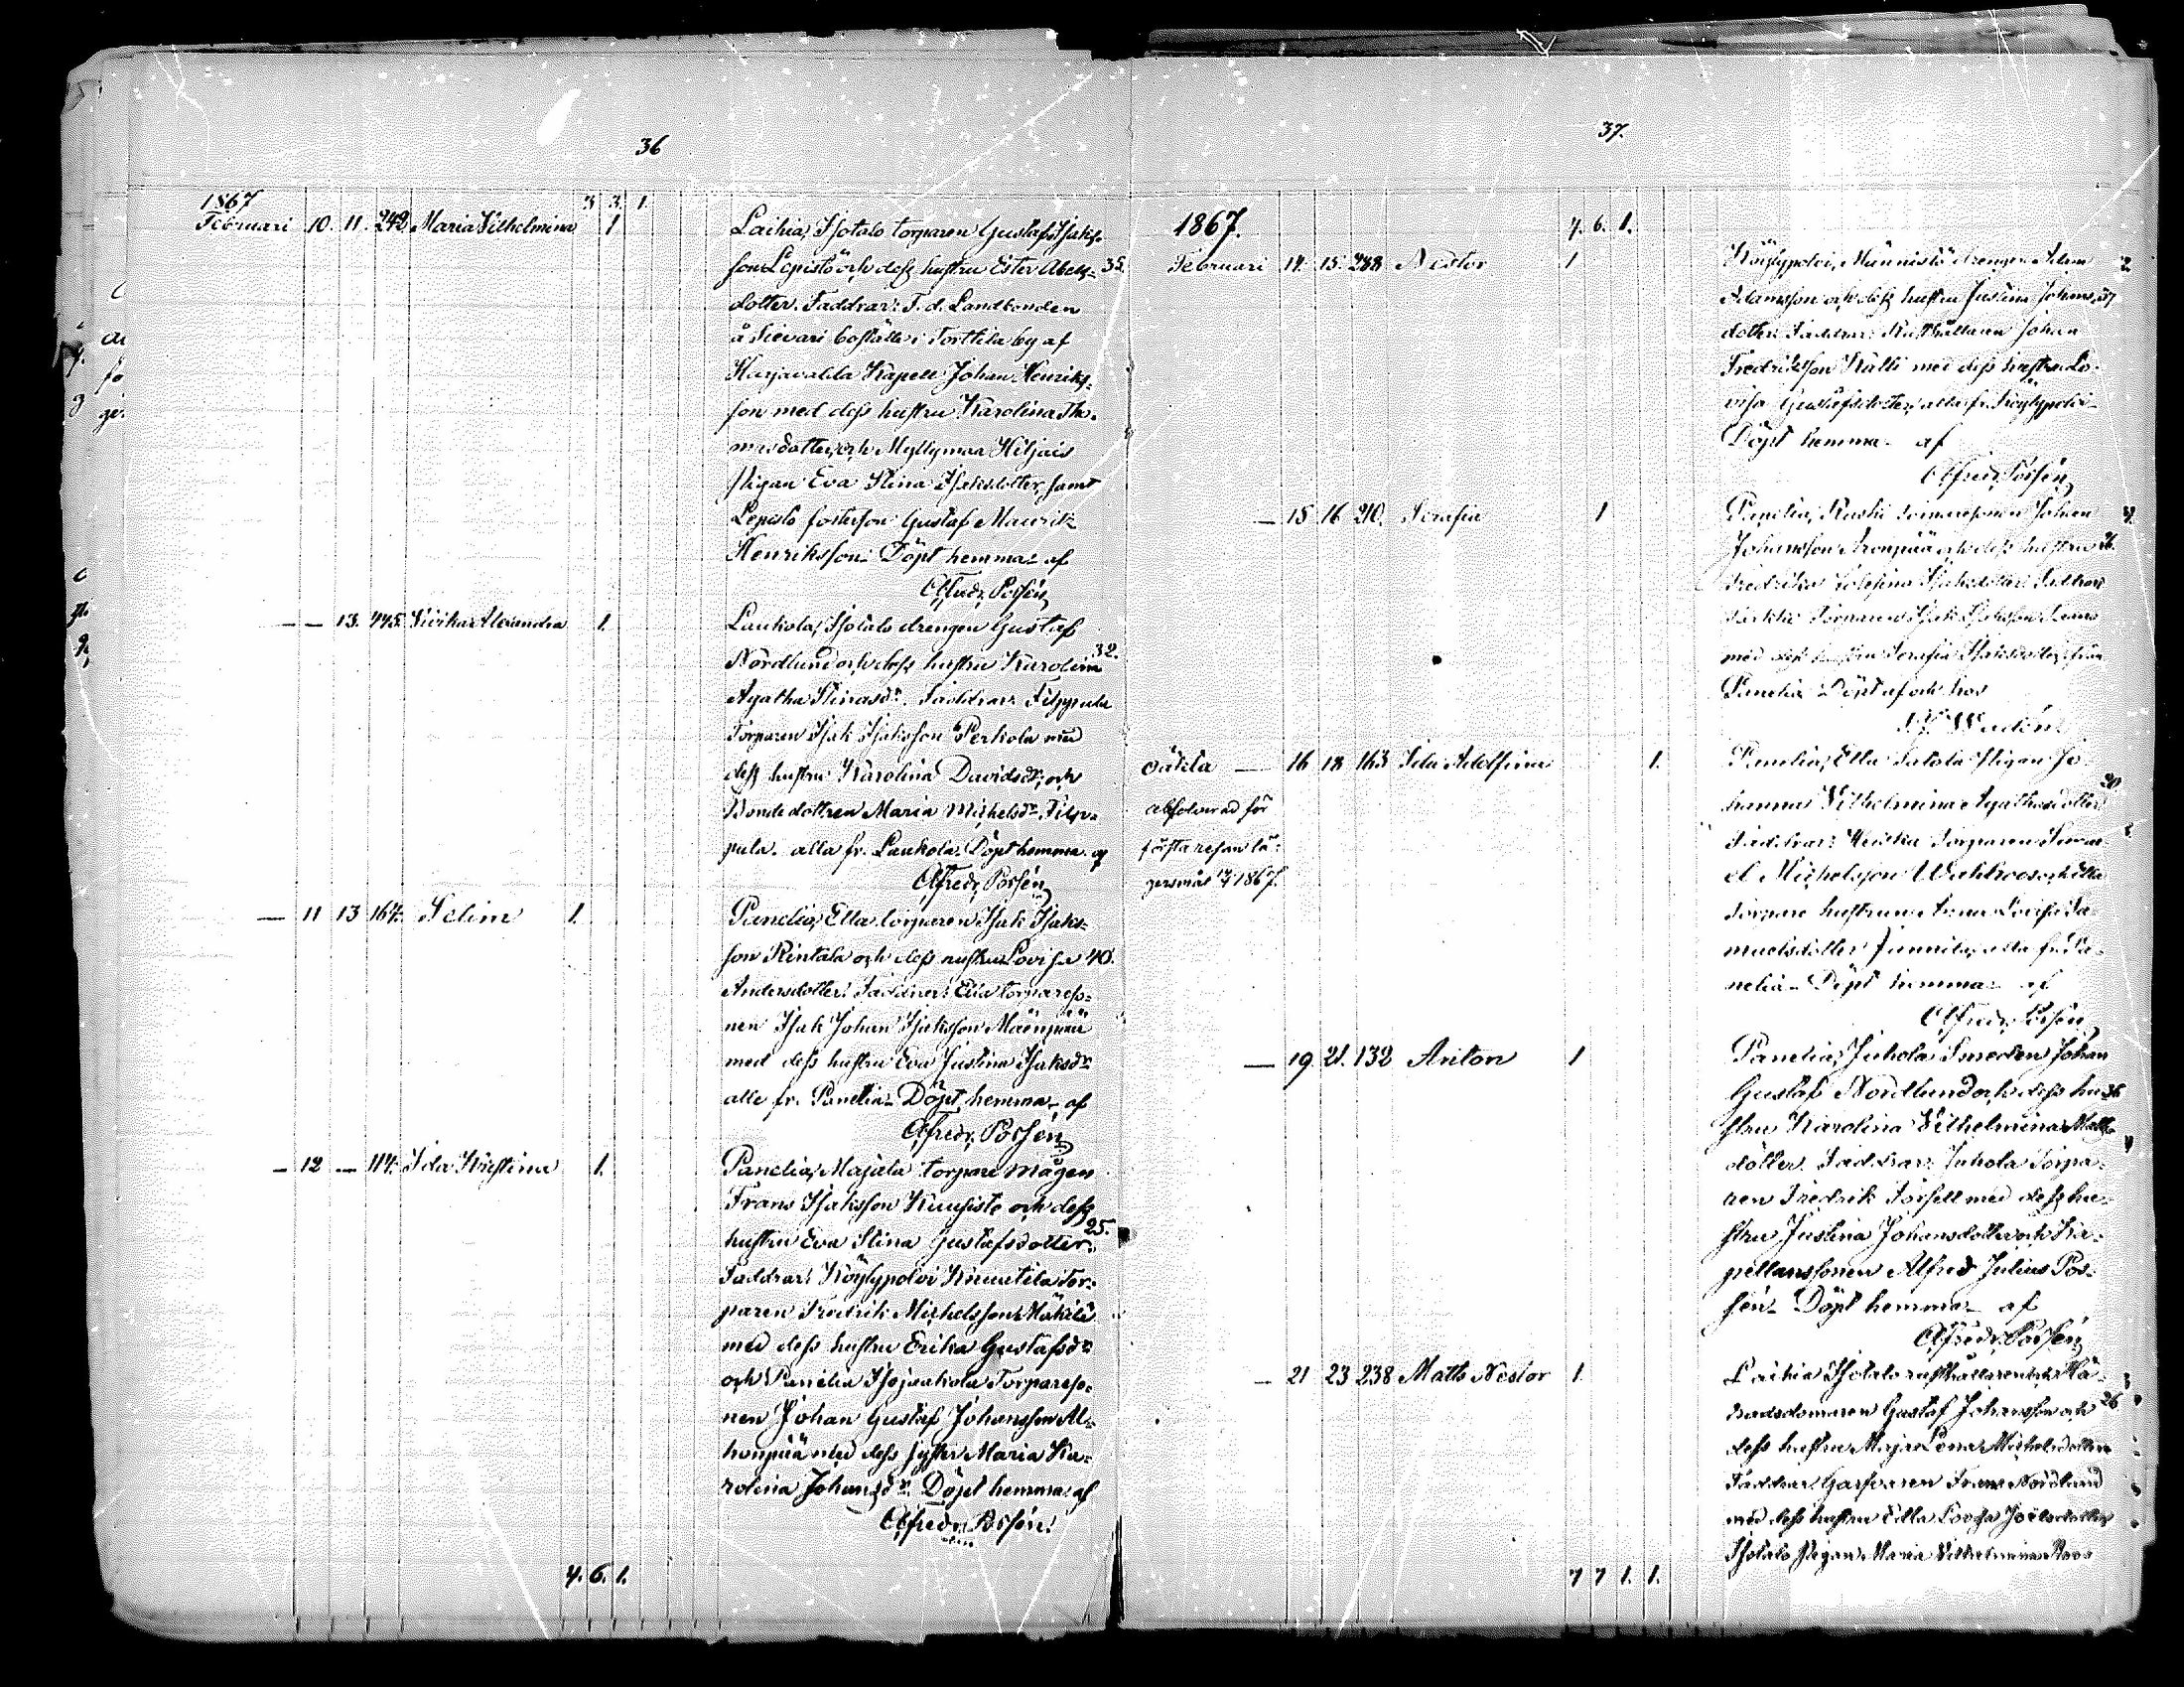 36
1867
3 3. 1.
Februari 10. 11. 242. Maria Vilhelmina 1
Laihia, Isotalo torparen Gustaf Isaks-
son Lepistö och dess hustru Ester Abels- 35.
dotter. Faddrar: F. d. Landbonden
å Sievari boställe i Torttila by af
Harjavalda Kapell Johan Henriks-
son med dess hustru Karolina Tho-
masdotter, och Myllymaa Hiljais
Pigan Eva Stina Isaksdotter, samt
Lepistö fosterson Gustaf Maurits
Henriksson. Döpt hemma af
Alfredr. Possén
— — 13. 445. Alexandra 1.
Laukola, Isotalo drengen Gustaf
Nordlund och dess hustru Karolina 32.
Agatha Stinasdr. Faddrar: Filppula
Torparen Isak Isaksson Perkola med
dess hustru Karolina Davidsdr, och
Bonde dottren Maria Michelsdr Filp-
pula. alla fr. Laukola. Döpt hemma af
Alfredr. Possén
— 11 13 164. Selim 1.
Panelia, Ella torparen Isak Isaks-
son Rintala och dess hustru Lovisa 40.
Andersdotter. Faddrar: Ella torpareso-
nen Isak Johan Isaksson Mäenpää
med dess hustru Eva Justina Isaksdr
alle fr. Panelia. Döpt hemma af
Alfredr. Possén
— 12 — 114. Ida Kristina 1.
Panelia, Majala torpare mågen
Frans Isaksson Kuusisto och dess
hustru Eva Stina Gustafsdotter. 25.
Faddrar: Köylypolvi Knuutila Tor-
paren Fredrik Michelsson Mäkilä
med dess hustru Erika Gustafsdr
och Panelia Isojaakola Torpareso-
nen Johan Gustaf Johansson Al-
honpää med dess syster Maria Ka-
rolina Johansdr. Döpt hemma af
Alfredr. Possén.
4. 6. 1.
37.
1867. 4. 6. 1.
Februari 14. 15. 288 Nestor 1
Köylypolvi, Männistö drengen Adam
Adamsson och dess hustru Justina Johans- 37
dotter. Faddrar: Rusthållaren Johan
Fredriksson Källi med dess hustru Lo-
visa Gustafsdotter, alla fr. Köylypolvi.
Döpt hemma af
Alfredr. Possén
— 15 16 210. Serafia 1
Panelia, Kaski Johan
Johansson Aronpää och dess hustru 26.
Fredrika Josefina Isaksdotter. Faddrar:
Torparen Isak Isaksson
med dess hustru Serafia Isaksdotter, från
Panelia. Döpt af och hos
Oäkta — 16 18 163 Ida Adolfina 1.
absolverad för
första resan lä-
gersmål 1867.
Panelia, Ella Satola Pigan Jo-
hanna Vilhelmina Agathasdotter 20
Faddrar: Heiska Torparen Samu-
el Michelsson och Ella
Torpare hustrun Anna Lovisa Sa-
muelsdotter Junnila, alla fr. Pa-
nelia. Döpt hemma af
Alfredr. Possén
— 19. 21. 132 Anton 1
Panelia, Juhola Smeden Johan
Gustaf Nordlund och dess hu- 36
stru Karolina Vilhelmina Matts-
dotter. Faddrar: Juhola Torpa-
ren Fredrik Forsell med dess hu-
stru Justina Johansdotter och Ka-
pellanssonen Alfred Julius Pos-
sén. Döpt hemma af
Alfredr. Possén
— 21 23 238 Matts Nestor 1.
Laihia Isotalo rusthållaren och Hä-
radsdomaren Gustaf Johansson och 26
dess hustru Maja Lena Michelsdotter
Faddrar: Garfvaren Frans Nordlund
med dess hustru Edla Lovisa Joelsdotter
Isotalo Pigan Maria Vilhelmina Roos
7 7 1. 1.